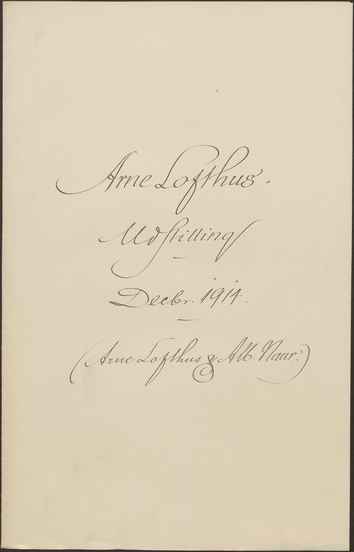 Arne Lofthus.
Udstilling
Decbr. 1914.
(Arne Lofthus & Alb. Naur.)